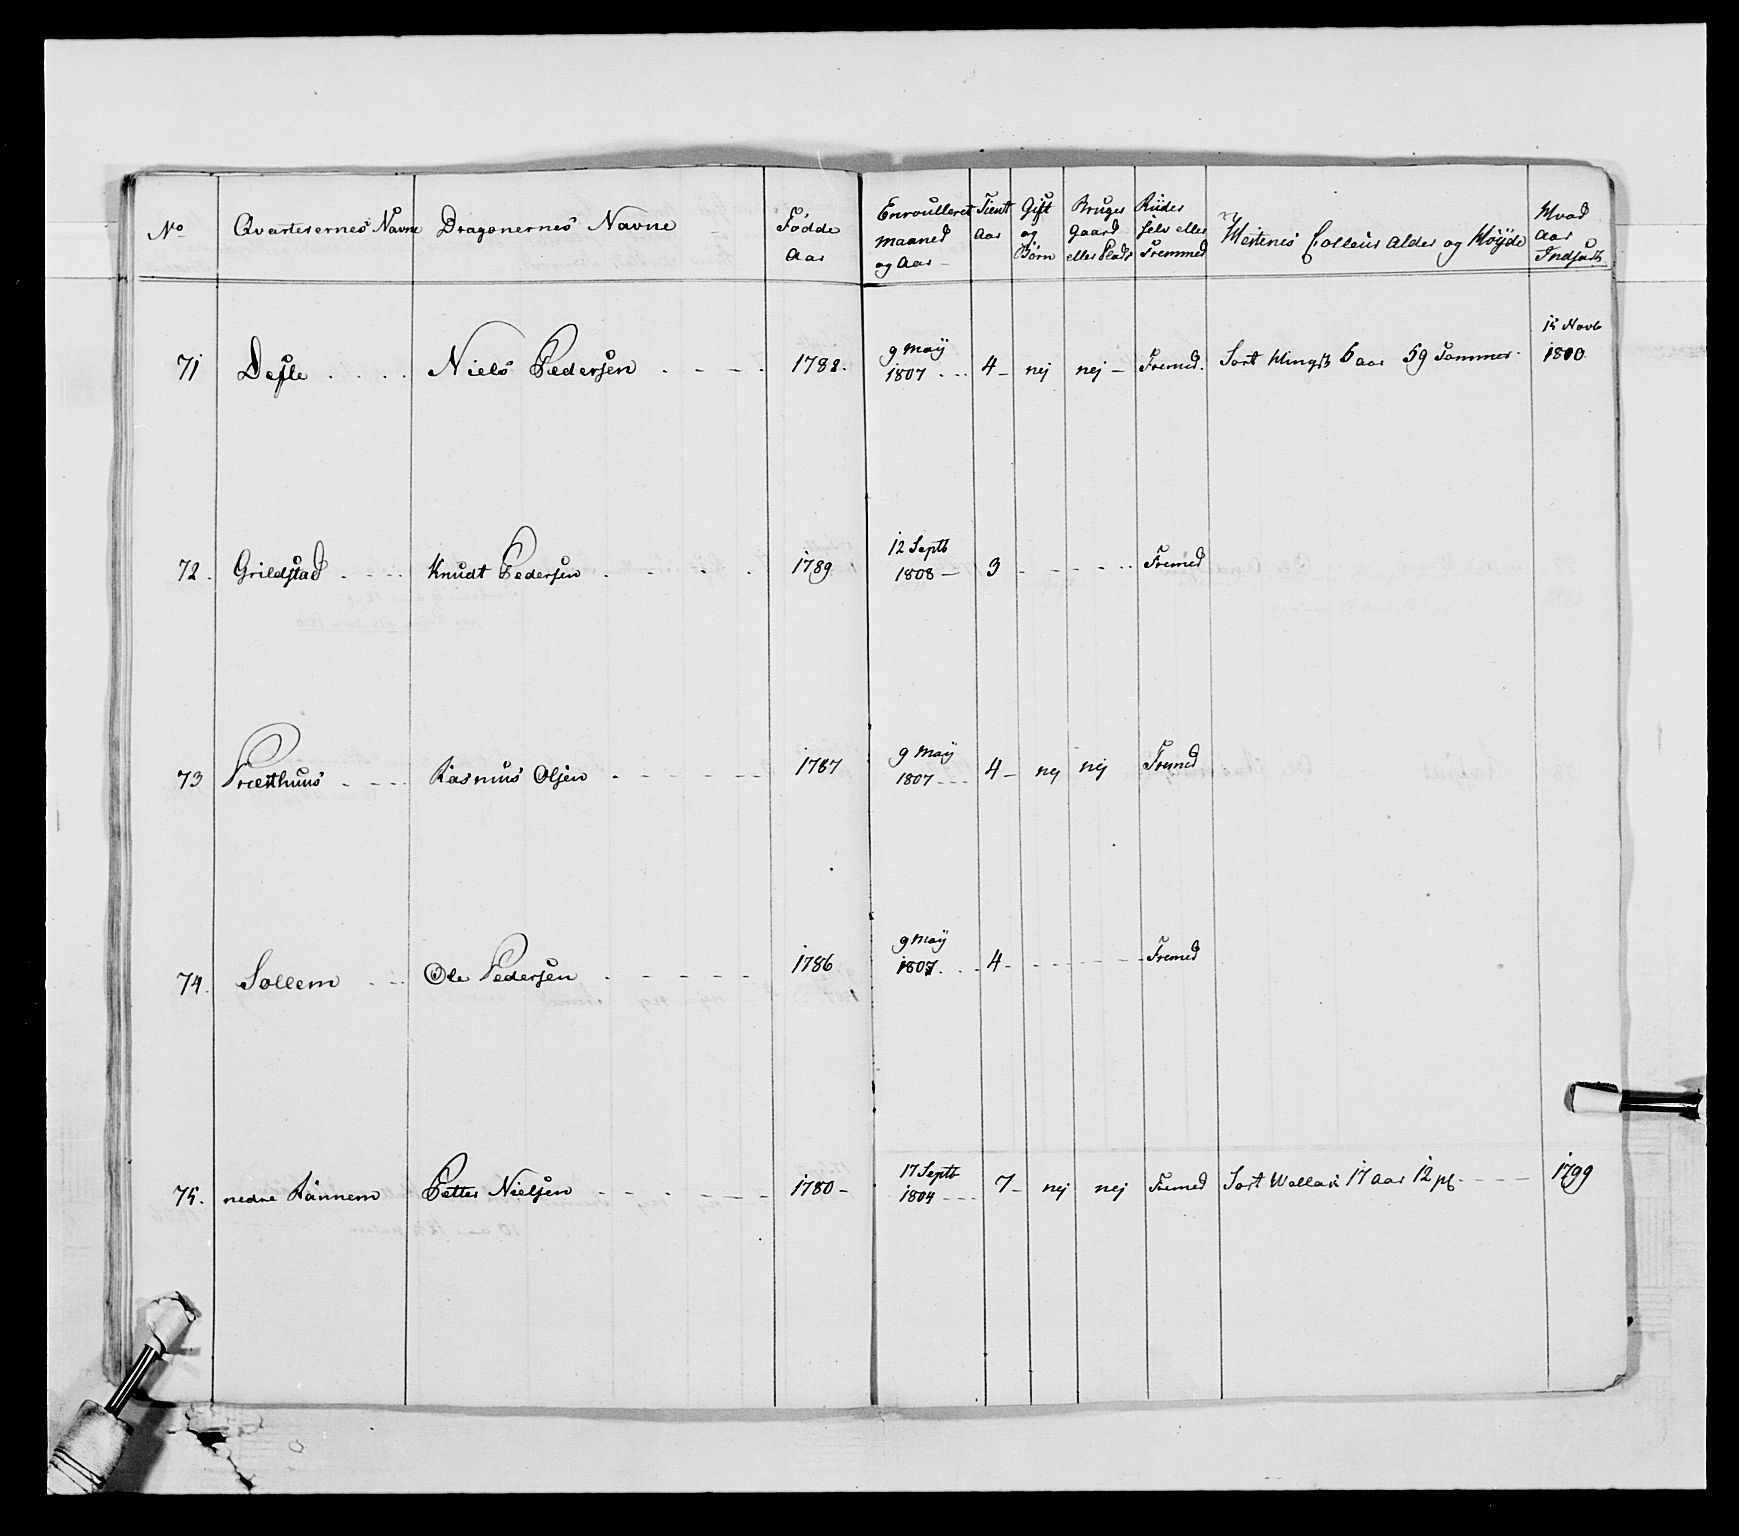 No Qvarterernes Navne Dragonernes Navne Födde Aar Enroulleret maaned og Aar Tient Aar Gift og Börn Bruger Gaard eller Plads Riider selv eller Fremmed Hestenes Colleur Alder og Høyde Hvad Aar Indsadt
71 Niels Pedersen 1782. 9 Maÿ 1807 4 nej nej Fremed. Sort Hingst 6 aar 59 Tommer 15 Novb 1810
72. Grildstad Knudt Pedersen 1789 12 Septb 1808 3 Fremed
73 Præsthuus Rasmus Olsen 1787 9 Maÿ 1807 4 nej nej Fremed
74. Sollem Ole Pedersen 1786 9 Maÿ 1807 4 Fremed
75. nedre Rannem Petter Nielsen 1780 17 Septb 1804 7 nej nej Fremed Sort Wallak 17 aar 12 1799